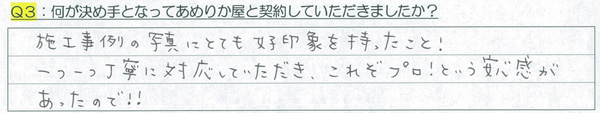 Q3：何が決め手となってあめりか屋と契約していただきましたか？
施工事例の写真にとても好印象を持ったこと！
一つ一つ丁寧に対応していただき、これぞプロ！という安心感が
あったので!!